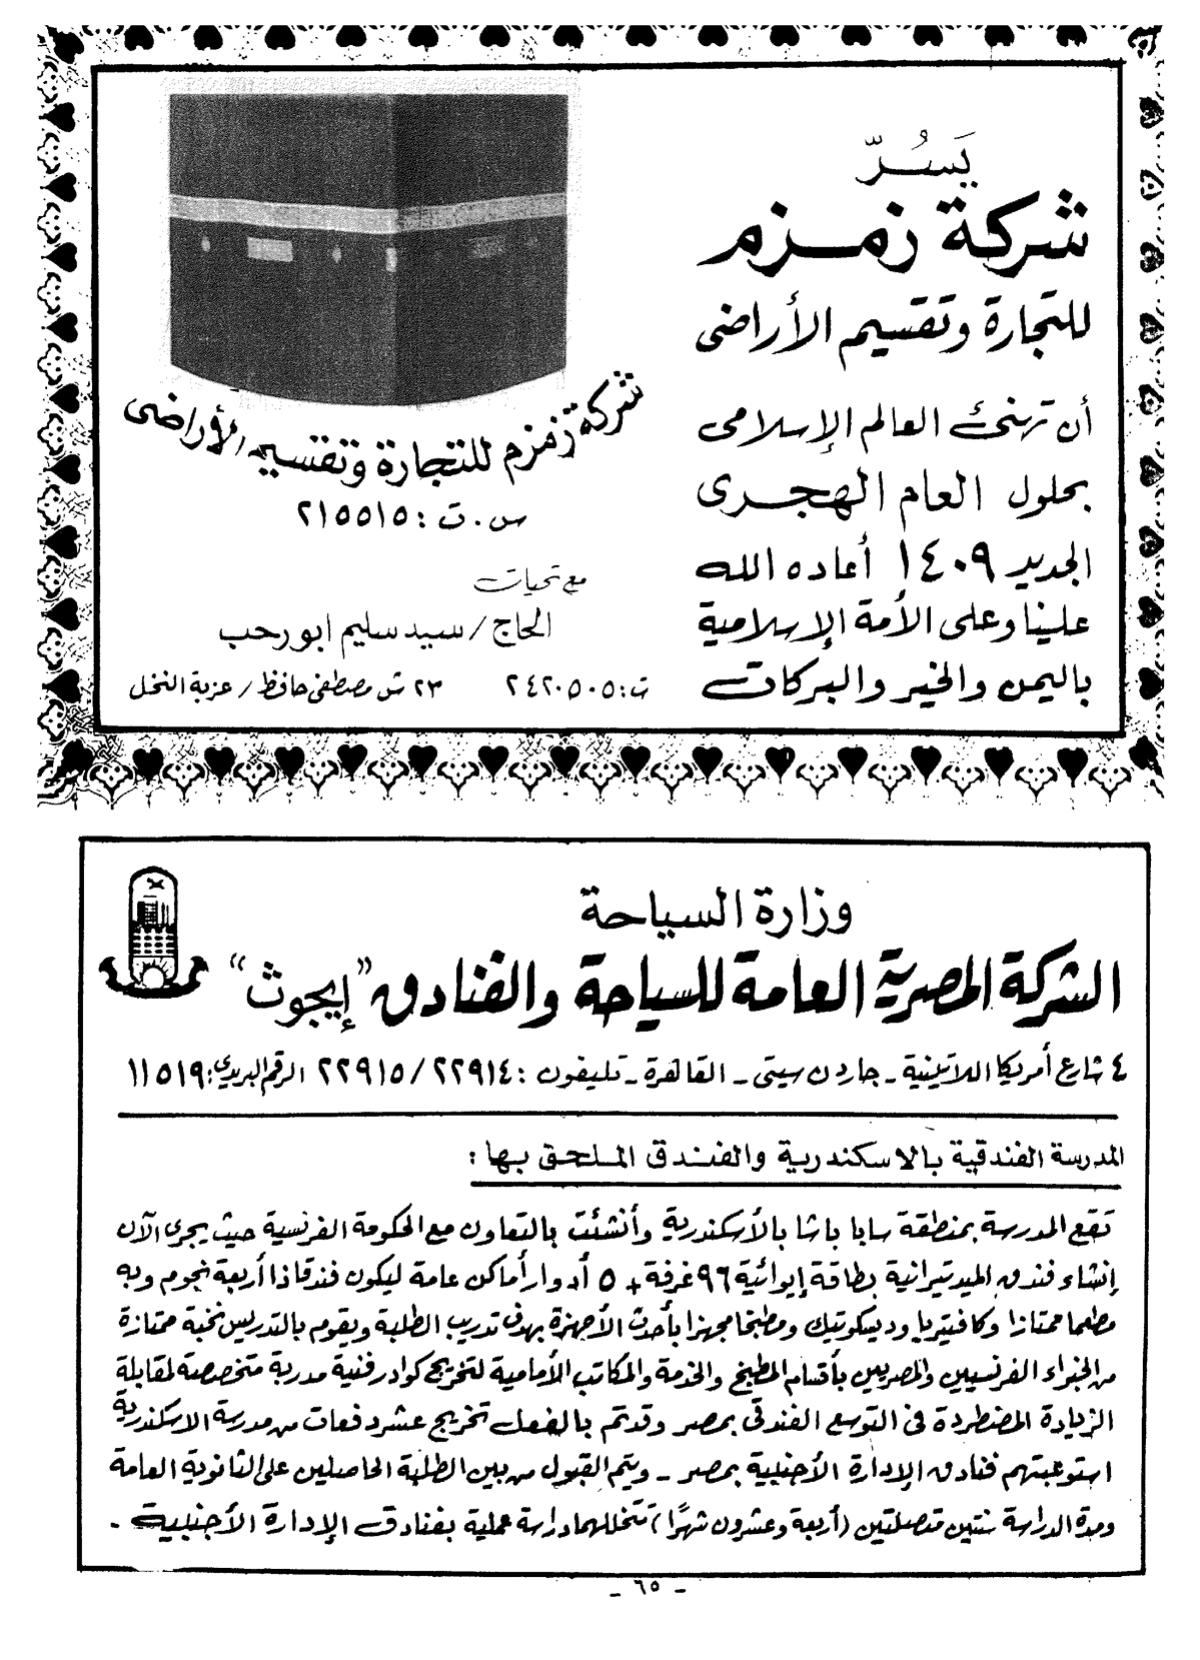 يَسُرّ
شركة زمزم
للتجارة وتقسيم الأراضى
أن تهنئ العالم الإسلامى
بحلول العام الهجرى
الجديد ١٤٠٩ أعاده الله
علينا وعلى الأمة الإسلامية
باليمن والخير والبركات
شركة زمزم للتجارة وتقسيم الأراضى
س.ت : ٢١٥٥١٥
مع تحيات
الحاج / سيد سليم ابورحب
ت : ٢٤٢٠٥٠٥ ٢٣ ش مصطفى حافظ / عزبة النخل
وزارة السياحة
الشركة المصرية العامة للسياحة والفنادق "إيجوث"
٤ شارع أمريكا اللاتينية - جاردن سيتى - القاهرة - تليفون : ٢٢٩١٤ / ٢٢٩١٥ الرقم البريدى : ١١٥١٩
المدرسة الفندقية بالاسكندرية والفندق الملحق بها :
تقع المدرسة بمنطقة سابا باشا بالأسكندرية وأنشئت بالتعاون مع الحكومة الفرنسية حيث يجرى الآن
إنشاء فندق الميديتيرانية بطاقة إيوائية ٩٦ غرفة + ٥ أدوار أماكن عامة ليكون فندقا ذا أربعة نجوم وبه
مطعما ممتازا وكافتيريا وديسكوتيك ومطبخا مجهزا بأحدث الأجهزة بهدف تدريب الطلبة ويقوم بالتدريس نخبة ممتازة
من الخبراء الفرنسيين والمصريين بأقسام المطبخ والخدمة والمكاتب الأمامية لتخريج كوادر فنية مدربة متخصصة لمقابلة
الزيادة المضطردة فى التوسع الفندقى بمصر وقد تم بالفعل تخريج عشر دفعات من مدرسة الاسكندرية
استوعبتهم فنادق الإدارة الأجنبية بمصر - ويتم القبول من بين الطلبة الحاصلين على الثانوية العامة
ومدة الدراسة سنتين متصلتين (أربعة وعشرون شهرًا) تتخللهما دراسة عملية بفنادق الإدارة الأجنبية .
- ٦٥ -